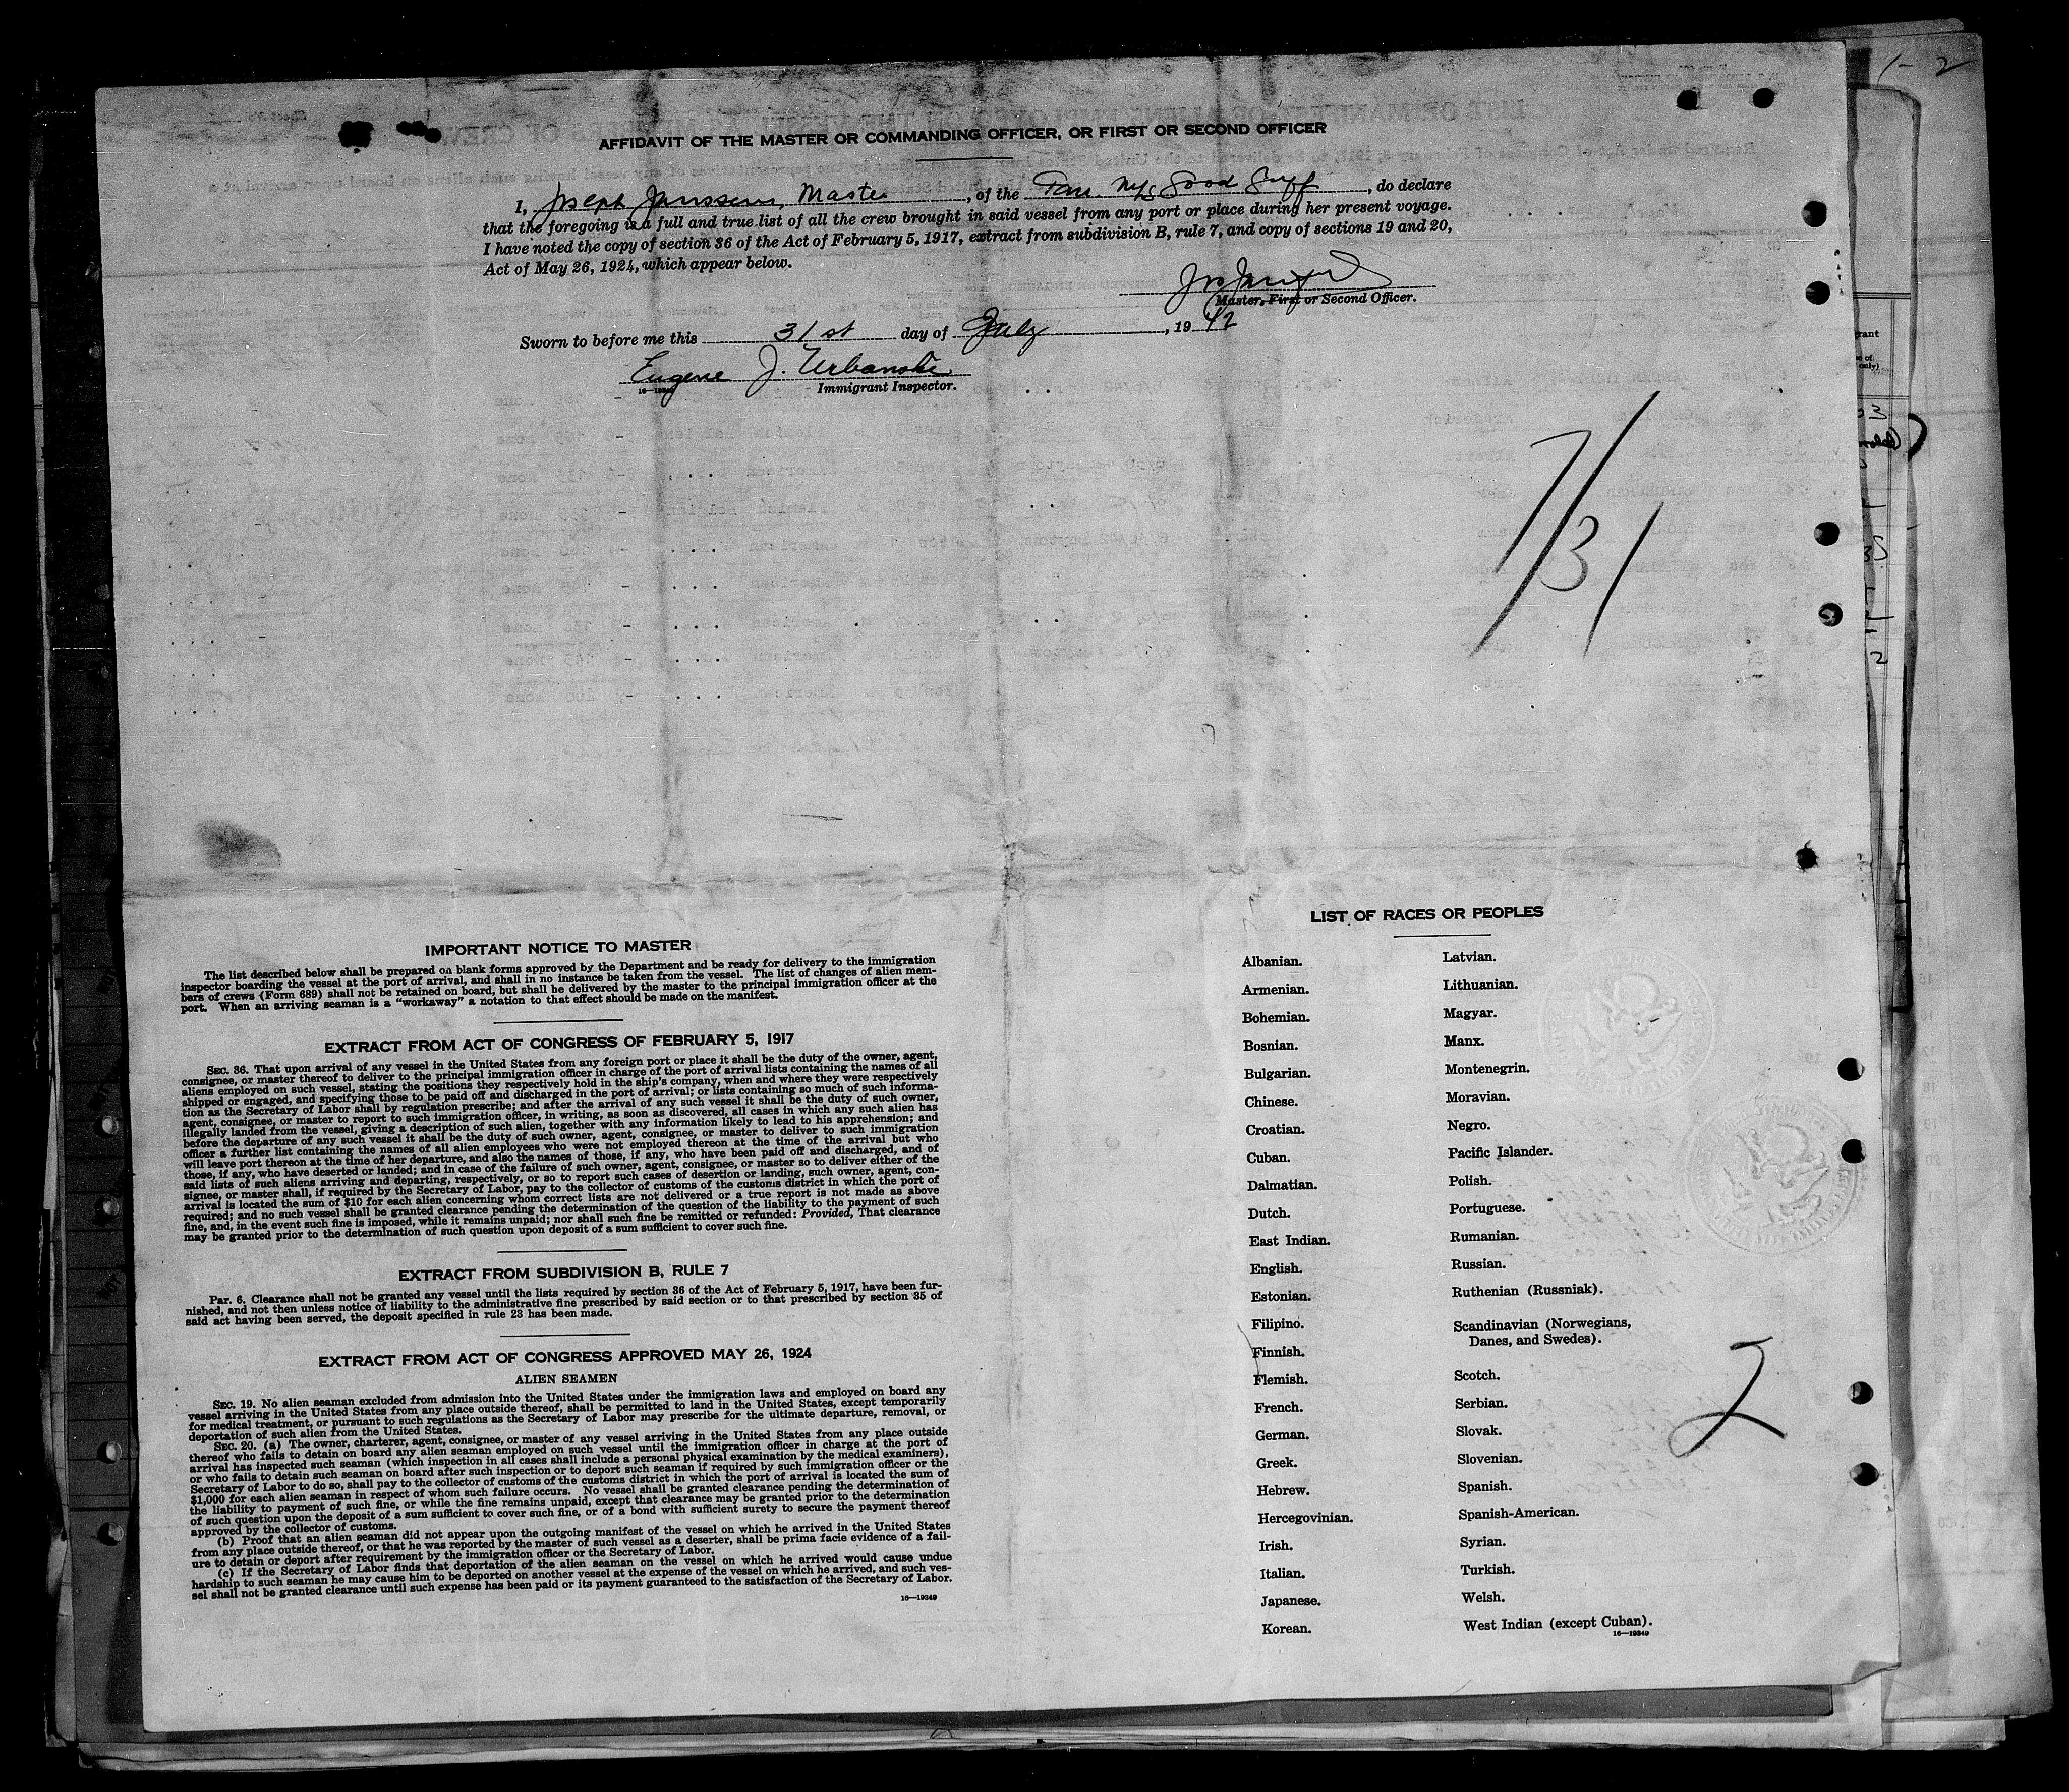 1- 2
AFFIDAVIT OF THE MASTER OR COMMANDING OFFICER, OR FIRST OR SECOND OFFICER
I, Joseph Janssens, Master, of the Pan. M/S Good Gulf, do declare
that the foregoing is a full and true list of all the crew brought in said vessel from any port or place during her present voyage.
I have noted the copy of section 36 of the Act of February 5, 1917, extract from subdivision B, rule 7, and copy of sections 19 and 20,
Act of May 26, 1924, which appear below.
Master, First or Second Officer.
Sworn to before me this 31st day of July, 19 42
Eugene J. Urbanske
16—19349 Immigrant Inspector.
7/31
IMPORTANT NOTICE TO MASTER
The list described below shall be prepared on blank forms approved by the Department and be ready for delivery to the immigration
inspector boarding the vessel at the port of arrival, and shall in no instance be taken from the vessel. The list of changes of alien mem-
bers of crews (Form 689) shall not be retained on board, but shall be delivered by the master to the principal immigration officer at the
port. When an arriving seaman is a "workaway" a notation to that effect should be made on the manifest.
EXTRACT FROM ACT OF CONGRESS OF FEBRUARY 5, 1917
SEC. 36. That upon arrival of any vessel in the United States from any foreign port or place it shall be the duty of the owner, agent,
consignee, or master thereof to deliver to the principal immigration officer in charge of the port of arrival lists containing the names of all
aliens employed on such vessel, stating the positions they respectively hold in the ship's company, when and where they were respectively
shipped or engaged, and specifying those to be paid off and discharged in the port of arrival; or lists containing so much of such informa-
tion as the Secretary of Labor shall by regulation prescribe; and after the arrival of any such vessel it shall be the duty of such owner,
agent, consignee, or master to report to such immigration officer, in writing, as soon as discovered, all cases in which any such alien has
illegally landed from the vessel, giving a description of such alien, together with any information likely to lead to his apprehension; and
before the departure of any such vessel it shall be the duty of such owner, agent, consignee, or master to deliver to such immigration
officer a further list containing the names of all alien employees who were not employed thereon at the time of the arrival but who
will leave port thereon at the time of her departure, and also the names of those, if any, who have been paid off and discharged, and of
those, if any, who have deserted or landed; and in case of the failure of such owner, agent, consignee, or master so to deliver either of the
said lists of such aliens arriving and departing, respectively, or so to report such cases of desertion or landing, such owner, agent, con-
signee, or master shall, if required by the Secretary of Labor, pay to the collector of customs of the customs district in which the port of
arrival is located the sum of $10 for each alien concerning whom correct lists are not delivered or a true report is not made as above
required; and no such vessel shall be granted clearance pending the determination of the question of the liability to the payment of such
fine, and, in the event such fine is imposed, while it remains unpaid; nor shall such fine be remitted or refunded: Provided, That clearance
may be granted prior to the determination of such question upon deposit of a sum sufficient to cover such fine.
EXTRACT FROM SUBDIVISION B, RULE 7
Par. 6. Clearance shall not be granted any vessel until the lists required by section 36 of the Act of February 5, 1917, have been fur-
nished, and not then unless notice of liability to the administrative fine prescribed by said section or to that prescribed by section 35 of
said act having been served, the deposit specified in rule 23 has been made.
EXTRACT FROM ACT OF CONGRESS APPROVED MAY 26, 1924
ALIEN SEAMEN
SEC. 19. No alien seaman excluded from admission into the United States under the immigration laws and employed on board any
vessel arriving in the United States from any place outside thereof, shall be permitted to land in the United States, except temporarily
for medical treatment, or pursuant to such regulations as the Secretary of Labor may prescribe for the ultimate departure, removal, or
deportation of such alien from the United States.
SEC. 20. (a) The owner, charterer, agent, consignee, or master of any vessel arriving in the United States from any place outside
thereof who fails to detain on board any alien seaman employed on such vessel until the immigration officer in charge at the port of
arrival has inspected such seaman (which inspection in all cases shall include a personal physical examination by the medical examiners),
or who fails to detain such seaman on board after such inspection or to deport such seaman if required by such immigration officer or the
Secretary of Labor to do so, shall pay to the collector of customs of the customs district in which the port of arrival is located the sum of
$1,000 for each alien seaman in respect of whom such failure occurs. No vessel shall be granted clearance pending the determination of
the liability to payment of such fine, or while the fine remains unpaid, except that clearance may be granted prior to the determination
of such question upon the deposit of a sum sufficient to cover such fine, or of a bond with sufficient surety to secure the payment thereof
approved by the collector of customs.
(b) Proof that an alien seaman did not appear upon the outgoing manifest of the vessel on which he arrived in the United States
from any place outside thereof, or that he was reported by the master of such vessel as a deserter, shall be prima facie evidence of a fail-
ure to detain or deport after requirement by the immigration officer or the Secretary of Labor.
(c) If the Secretary of Labor finds that deportation of the alien seaman on the vessel on which he arrived would cause undue
hardship to such seaman he may cause him to be deported on another vessel at the expense of the vessel on which he arrived, and such ves-
sel shall not be granted clearance until such expense has been paid or its payment guaranteed to the satisfaction of the Secretary of Labor.
16—19349
LIST OF RACES OR PEOPLES
Albanian.
Armenian.
Bohemian.
Bosnian.
Bulgarian.
Chinese.
Croatian.
Cuban.
Dalmatian.
Dutch.
East Indian.
English.
Estonian.
Filipino.
Finnish.
Flemish.
French.
German.
Greek.
Hebrew.
Hercegovinian.
Irish.
Italian.
Japanese.
Korean.
Latvian.
Lithuanian.
Magyar.
Manx.
Montenegrin.
Moravian.
Negro.
Pacific Islander.
Polish.
Portuguese.
Rumanian.
Russian.
Ruthenian (Russniak).
Scandinavian (Norwegians,
Danes, and Swedes).
Scotch.
Serbian.
Slovak.
Slovenian.
Spanish.
Spanish-American.
Syrian.
Turkish.
Welsh.
West Indian (except Cuban).
16—19349
2